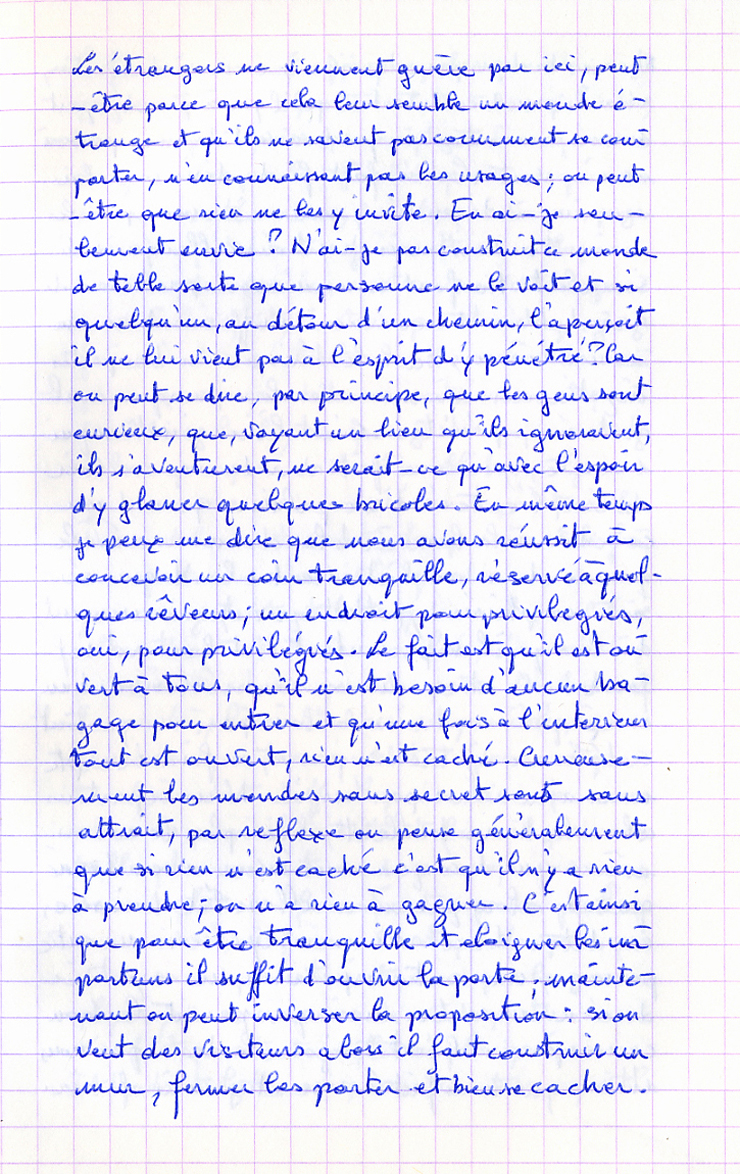 Les étrangers ne viennent guère par ici, peut
-être parce que cela leur semble un monde é-
trange et qu'ils ne savent pas comment se com
porter, n'en connaissant pas les usages ; ou peut
-être que rien ne les y invite. En ai-je seu-
lement envie ? N'ai-je pas construit ce monde
de telle sorte que personne ne le voit et si
quelqu'un, au détour d'un chemin, l'aperçoit
il ne lui vient pas à l'esprit d'y pénétré ? Car
on peut se dire, par principe, que les gens sont
curieux, que, voyant un lieu qu'ils ignoraient,
ils s'aventurent, ne serait-ce qu'avec l'espoir
d'y glaner quelques bricoles. En même temps
je peux me dire que nous avons réussit à
concevoir un coin tranquille, réservé à quel-
ques rêveurs ; un endroit pour privilégiés,
oui, pour privilégiés. Le fait est qu'il est ou
vert à tous, qu'il n'est besoin d'aucun ba-
gage pour entrer et qu'une fois à l'intérieur
tout est ouvert, rien n'est caché. Curieuse-
ment les mondes sans secret sont sans
attrait, par reflexe on pense généralement
que si rien n'est caché c'est qu'il n'y a rien
à prendre ; on n'a rien à gagner. C'est ainsi
que pour être tranquille et eloigner les im
portuns il suffit d'ouvrir la porte ; mainte-
nant on peut inverser la proposition : si on
veut des visiteurs alors il faut construire un
mur, fermer les portes et bien se cacher.